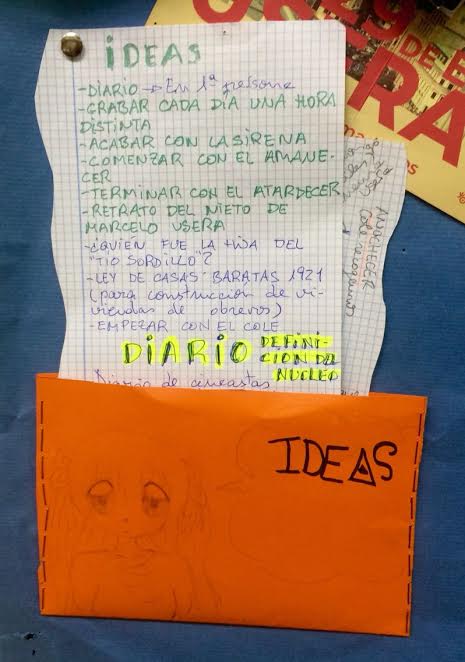 IDEAS
-DIARIO → En 1ª persona
-GRABAR CADA DÍA UNA HORA
DISTINTA
-ACABAR CON LA SIRENA
-COMENZAR CON EL AMANE-
CER
-TERMINAR CON EL ATARDECER
-RETRATO DEL NIETO DE
MARCELO USERA
-¿QUIÉN FUE LA HIJA DEL
"TÍO SORDILLO"?
-LEY DE CASAS BARATAS 1921
(para construcción de vi-
viendas de obreros)
-EMPEZAR CON EL COLE
DIARIO DEFINI-
CIÓN DEL
NÚCLEO
Diario de cineastas
IDEAS
DE E
ERA
ANOCHECER